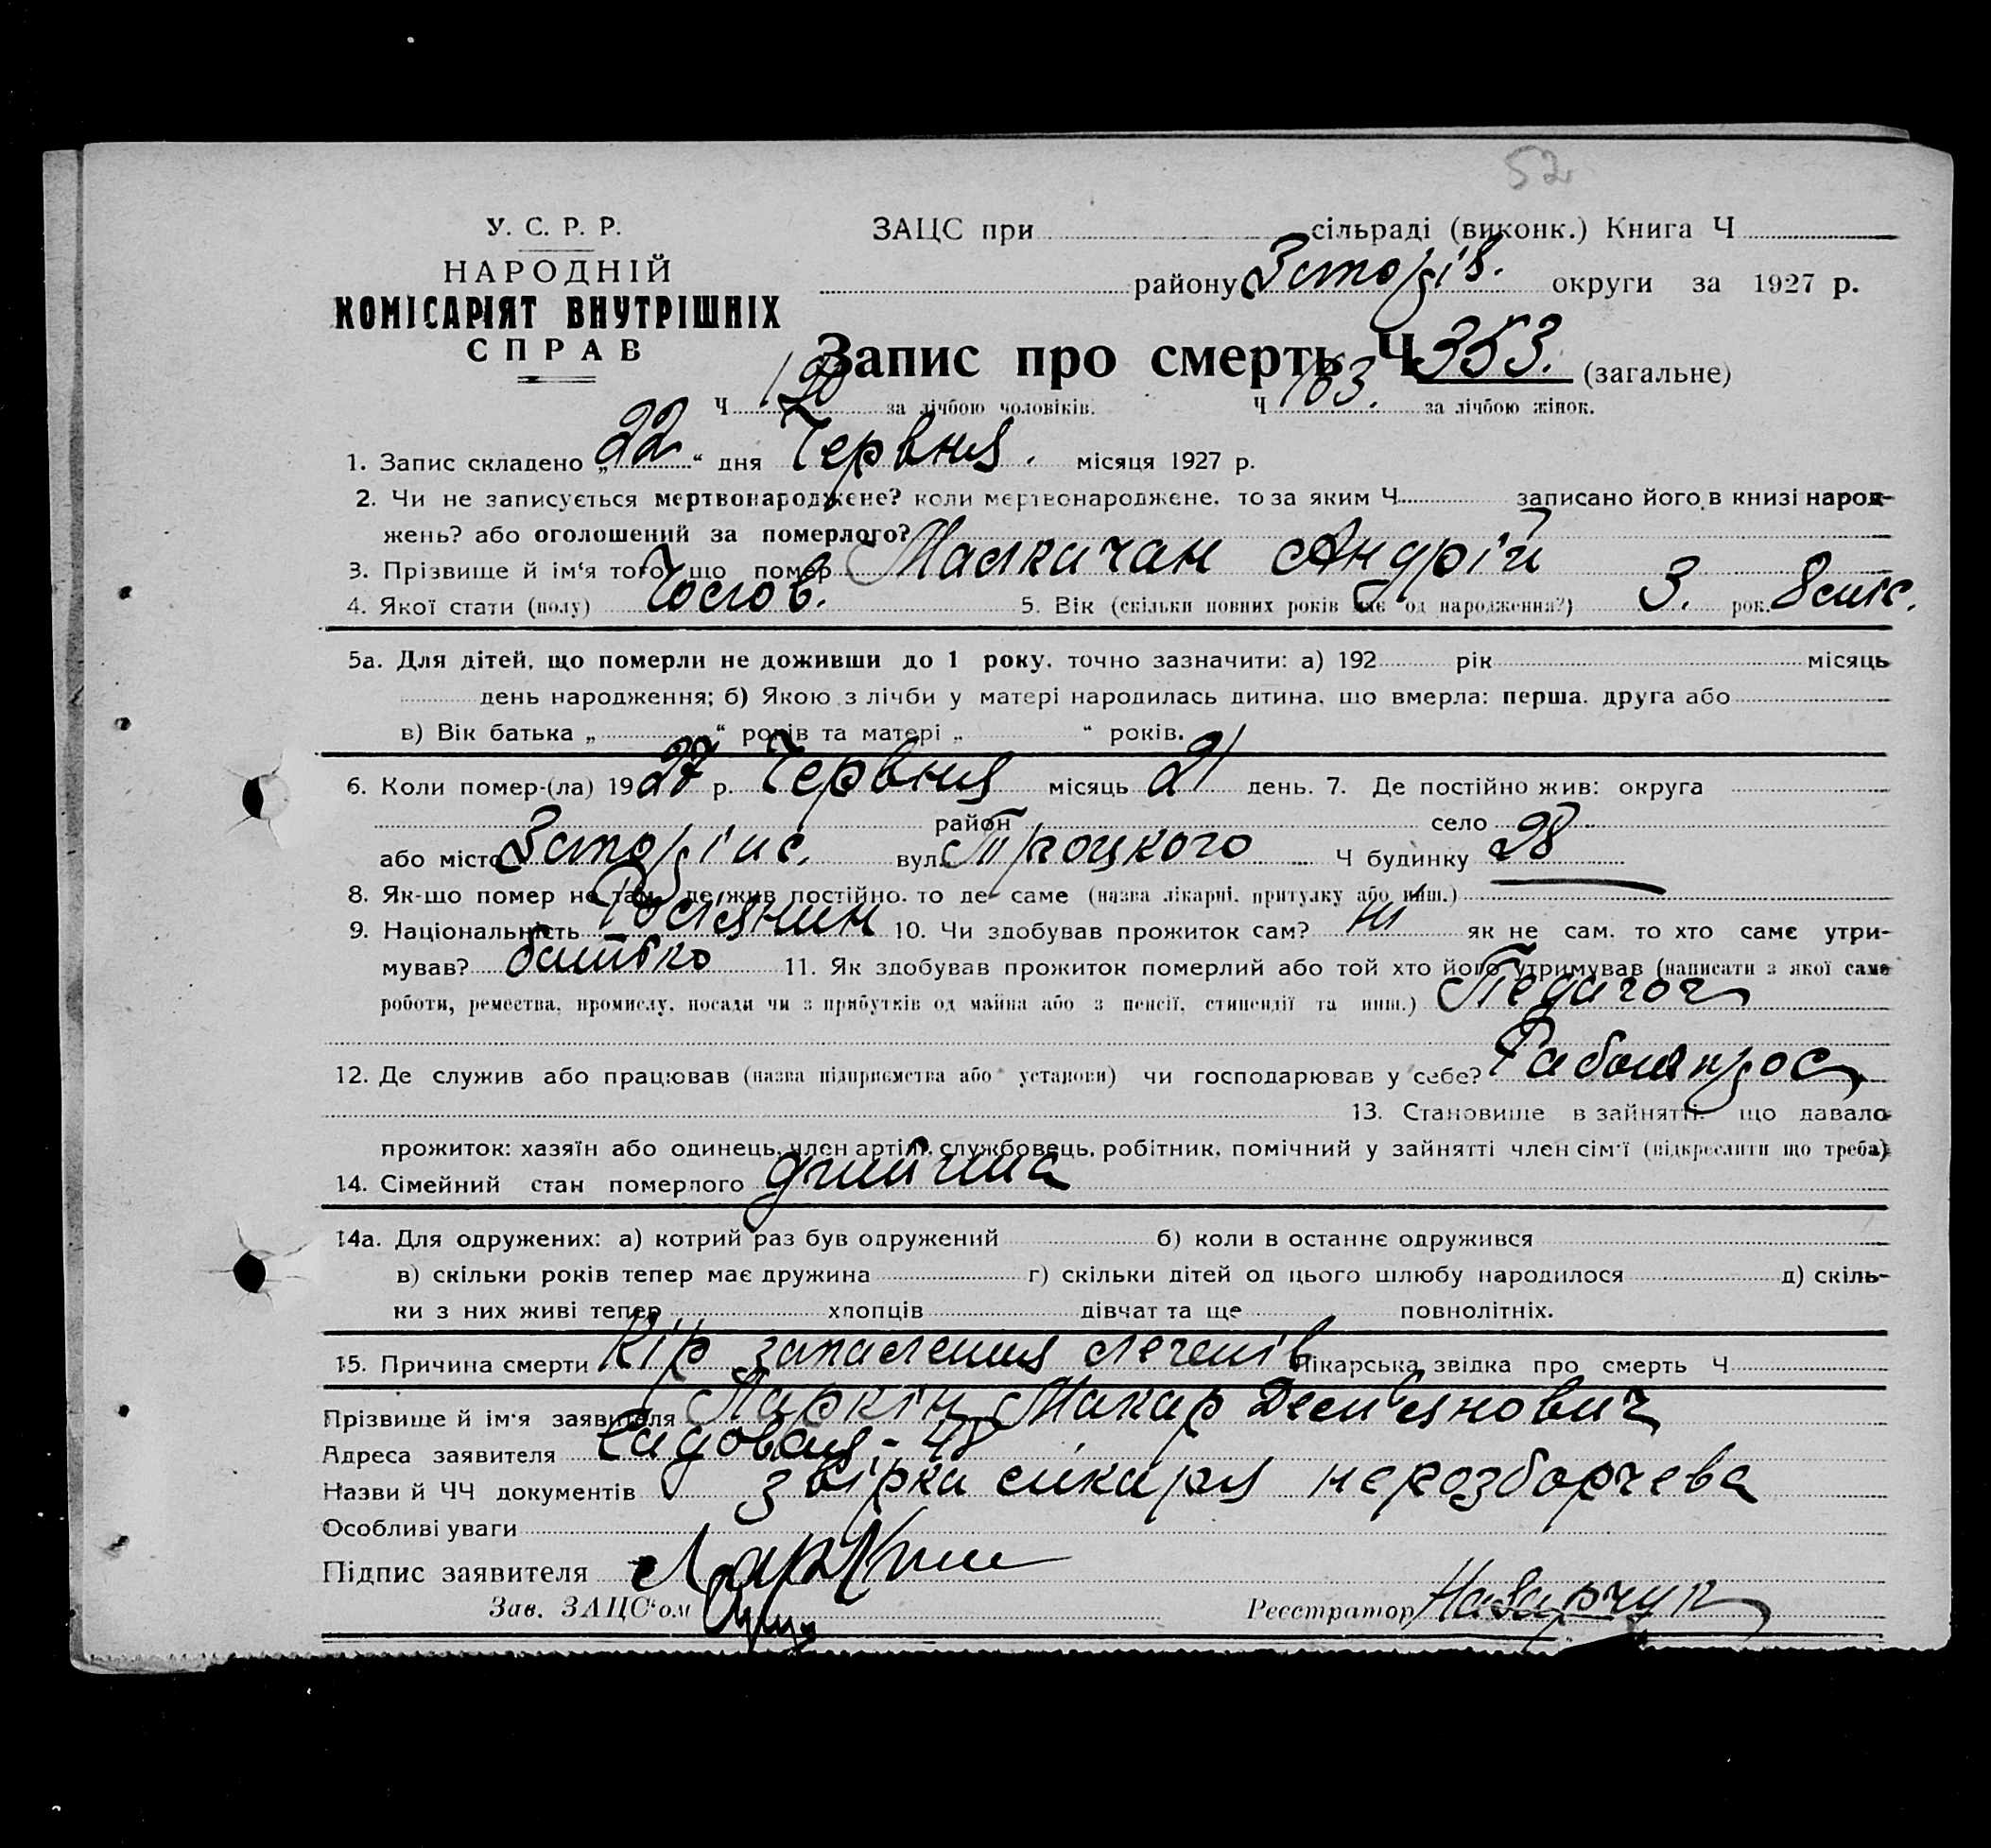 52
У. С. Р. Р.
НАРОДНІЙ
КОМІСАРІЯТ ВНУТРІШНІХ
СПРАВ
ЗАЦС при сільраді (виконк.) Книга Ч
району округи за 1927 р.
Запис про смерть Ч 353. (загальне)
Ч 190 за лічбою чоловіків. Ч 163. за лічбою жінок.
1. Запис складено „22“ дня Червня. місяця 1927 р.
2. Чи не записується мертвонароджене? коли мертвонароджене, то за яким Ч записано його в книзі народ-
жень? або оголошений за померлого?
3. Прізвище й ім‘я того, що помер Андрій
4. Якої стати (полу) Чолов. 5. Вік (скільки повних років має од народження?) 3. рок. 8 міс.
5а. Для дітей, що померли не доживши до 1 року, точно зазначити: а) 192 рік місяць
день народження; б) Якою з лічби у матері народилась дитина, що вмерла: перша, друга або
в) Вік батька „ “ років та матері „ “ років.
6. Коли помер-(ла) 1927 р. Червня місяць 21 день. 7. Де постійно жив: округа
район село
або місто вул. Троцкого Ч будинку 28
8. Як-що помер не там, де жив постійно, то де саме (назва лікарні, притулку або инш.)
9. Національність Росіянин 10. Чи здобував прожиток сам? ні як не сам, то хто саме утри-
мував? батько 11. Як здобував прожиток померлий або той хто його утримував (написати з якої саме
роботи, ремества, промислу, посади чи з прибутків од майна або з пенсії, стипендії та инш.) Педагог
12. Де служив або працював (назва підприємства або установи) чи господарював у себе? Работпрос
13. Становище в зайнятті, що давало
прожиток: хазяїн або одинець, член артілі, службовець, робітник, помічний у зайнятті член сім‘ї (підкреслити що треба)
14. Сімейний стан померлого дитина
14а. Для одружених: а) котрий раз був одружений б) коли в останнє одружився
в) скільки років тепер має дружина г) скільки дітей од цього шлюбу народилося д) скіль-
ки з них живі тепер хлопців дівчат та ще повнолітніх.
15. Причина смерти Кір запалення легенів Лікарська звідка про смерть Ч
Прізвище й ім‘я заявителя Ларкін Макар Дем‘янович
Адреса заявителя Садовая - 48
Назви й ЧЧ документів звірка лікаря нерозборчева
Особливі уваги
Підпис заявителя Ларкин
Зав. ЗАЦС‘ом Реєстратор Назарчук